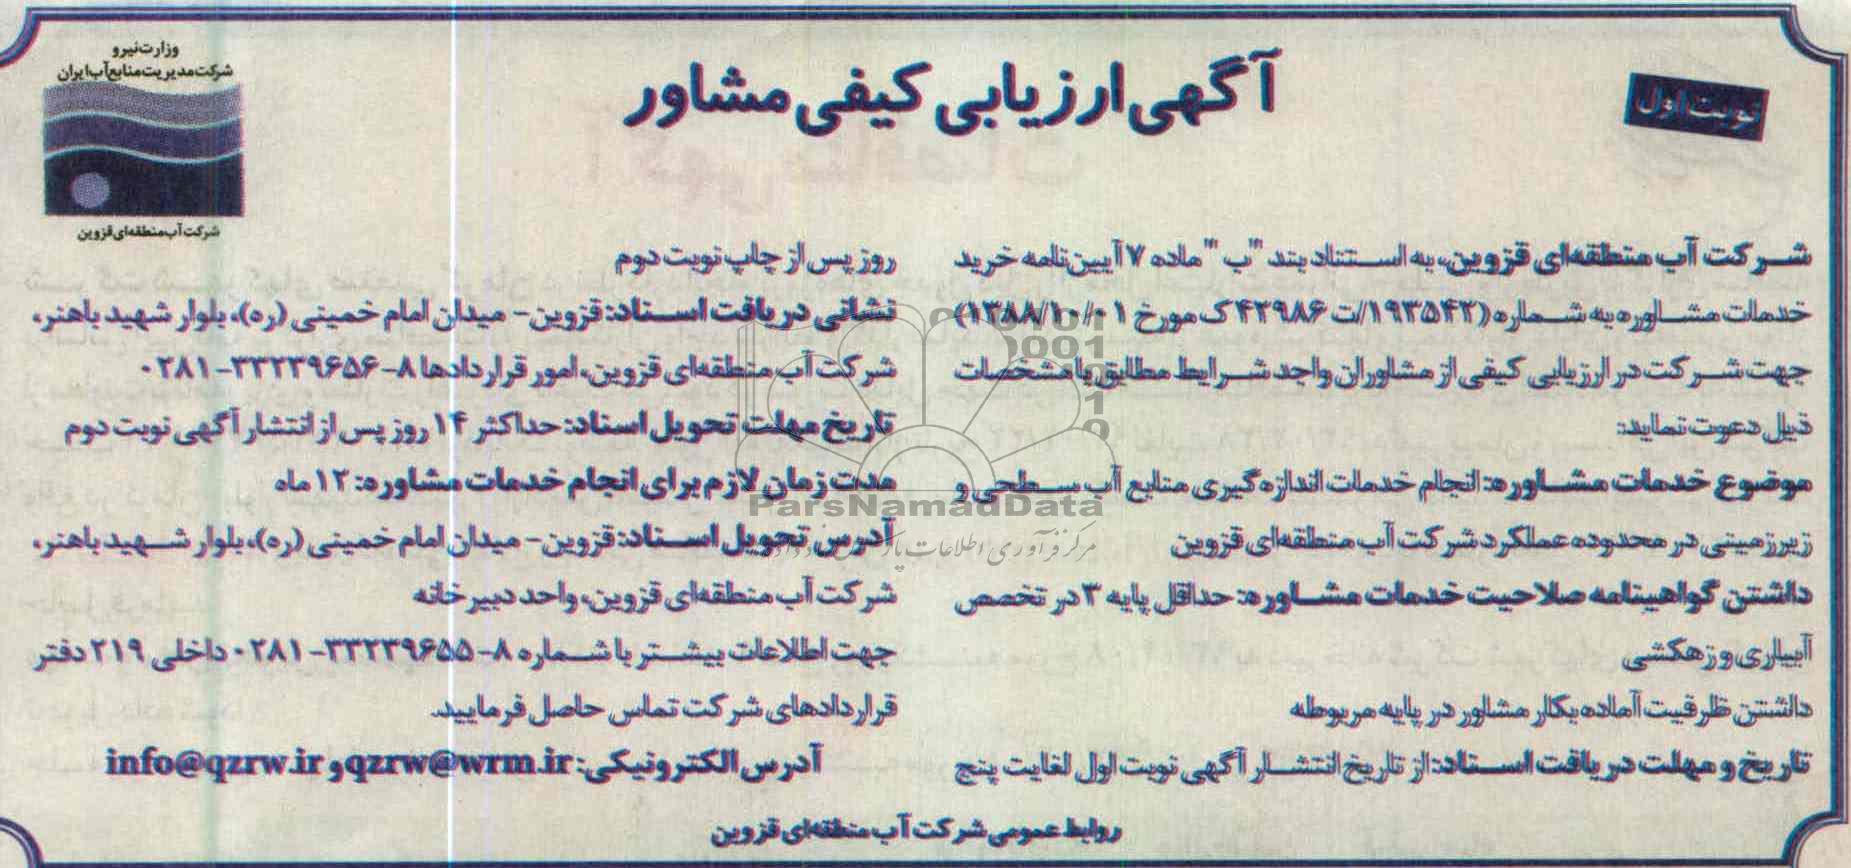 وزارت نیرو
شرکت مدیریت منابع آب ایران
شرکت آب منطقه‌ای قزوین
نوبت اول
آگهی ارزیابی کیفی مشاور
شرکت آب منطقه‌ای قزوین، به استناد بند "ب" ماده ۷ آیین‌نامه خرید
خدمات مشاوره به شماره (۱۹۳۵۴۲/ت ۴۲۹۸۶ک مورخ ۱۳۸۸/۱۰/۰۱)
جهت شرکت در ارزیابی کیفی از مشاوران واجد شرایط مطابق با مشخصات
ذیل دعوت نماید:
موضوع خدمات مشاوره: انجام خدمات اندازه‌گیری منابع آب سطحی و
زیرزمینی در محدوده عملکرد شرکت آب منطقه‌ای قزوین
داشتن گواهینامه صلاحیت خدمات مشاوره: حداقل پایه ۳ در تخصص
آبیاری و زهکشی
داشتن ظرفیت آماده بکار مشاور در پایه مربوطه
تاریخ و مهلت دریافت اسناد: از تاریخ انتشار آگهی نوبت اول لغایت پنج
روز پس از چاپ نوبت دوم
نشانی دریافت اسناد: قزوین- میدان امام خمینی (ره)، بلوار شهید باهنر،
شرکت آب منطقه‌ای قزوین، امور قراردادها ۸-۳۳۲۳۹۶۵۶-۰۲۸۱
تاریخ مهلت تحویل اسناد: حداکثر ۱۴ روز پس از انتشار آگهی نوبت دوم
مدت زمان لازم برای انجام خدمات مشاوره: ۱۲ ماه
آدرس تحویل اسناد: قزوین- میدان امام خمینی (ره)، بلوار شهید باهنر،
شرکت آب منطقه‌ای قزوین، واحد دبیرخانه
جهت اطلاعات بیشتر با شماره ۸-۳۳۲۳۹۶۵۵-۰۲۸۱ داخلی ۲۱۹ دفتر
قراردادهای شرکت تماس حاصل فرمایید.
آدرس الکترونیکی: qzrw@wrm.ir و info@qzrw.ir
روابط عمومی شرکت آب منطقه‌ای قزوین
ParsNamadData